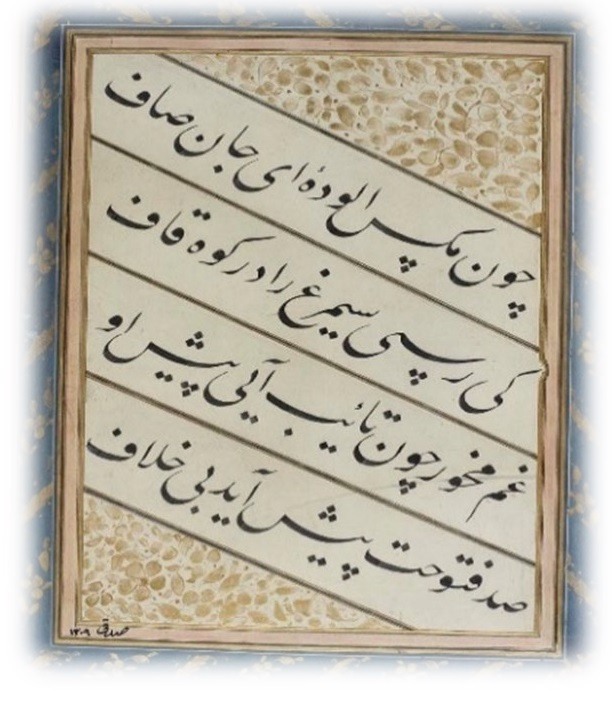 چون مگس آلودهٔ ای جان صاف
کی رسی سیمرغ را در کوه قاف
غم مخور چون تائب آیی پیش او
صد فتوحت پیش آید بی خلاف
صدیق ۱۳۰۹